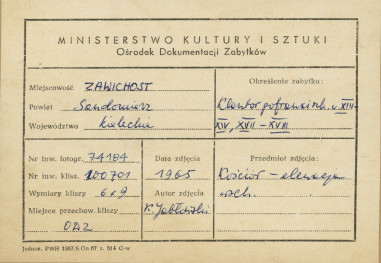 MINISTERSTWO KULTURY I SZTUKI
Ośrodek Dokumentacji Zabytków
Miejscowość ZAWICHOST
Powiat Sandomierz
Województwo kieleckie
Określenie zabytku:
Klasztor pofrancisz. w. XIII-
XIV, XVII-XVIII
Nr inw. fotogr. 74184
Nr inw. klisz. 100701
Wymiary kliszy 6x9
Miejsce przechow. kliszy
ODZ
Data zdjęcia
1965
Autor zdjęcia
K. Jabłoński
Przedmiot zdjęcia:
Kościół - elewacja
wsch.
Jednor. PWH 1967/S Om 67 z. 514 G-w